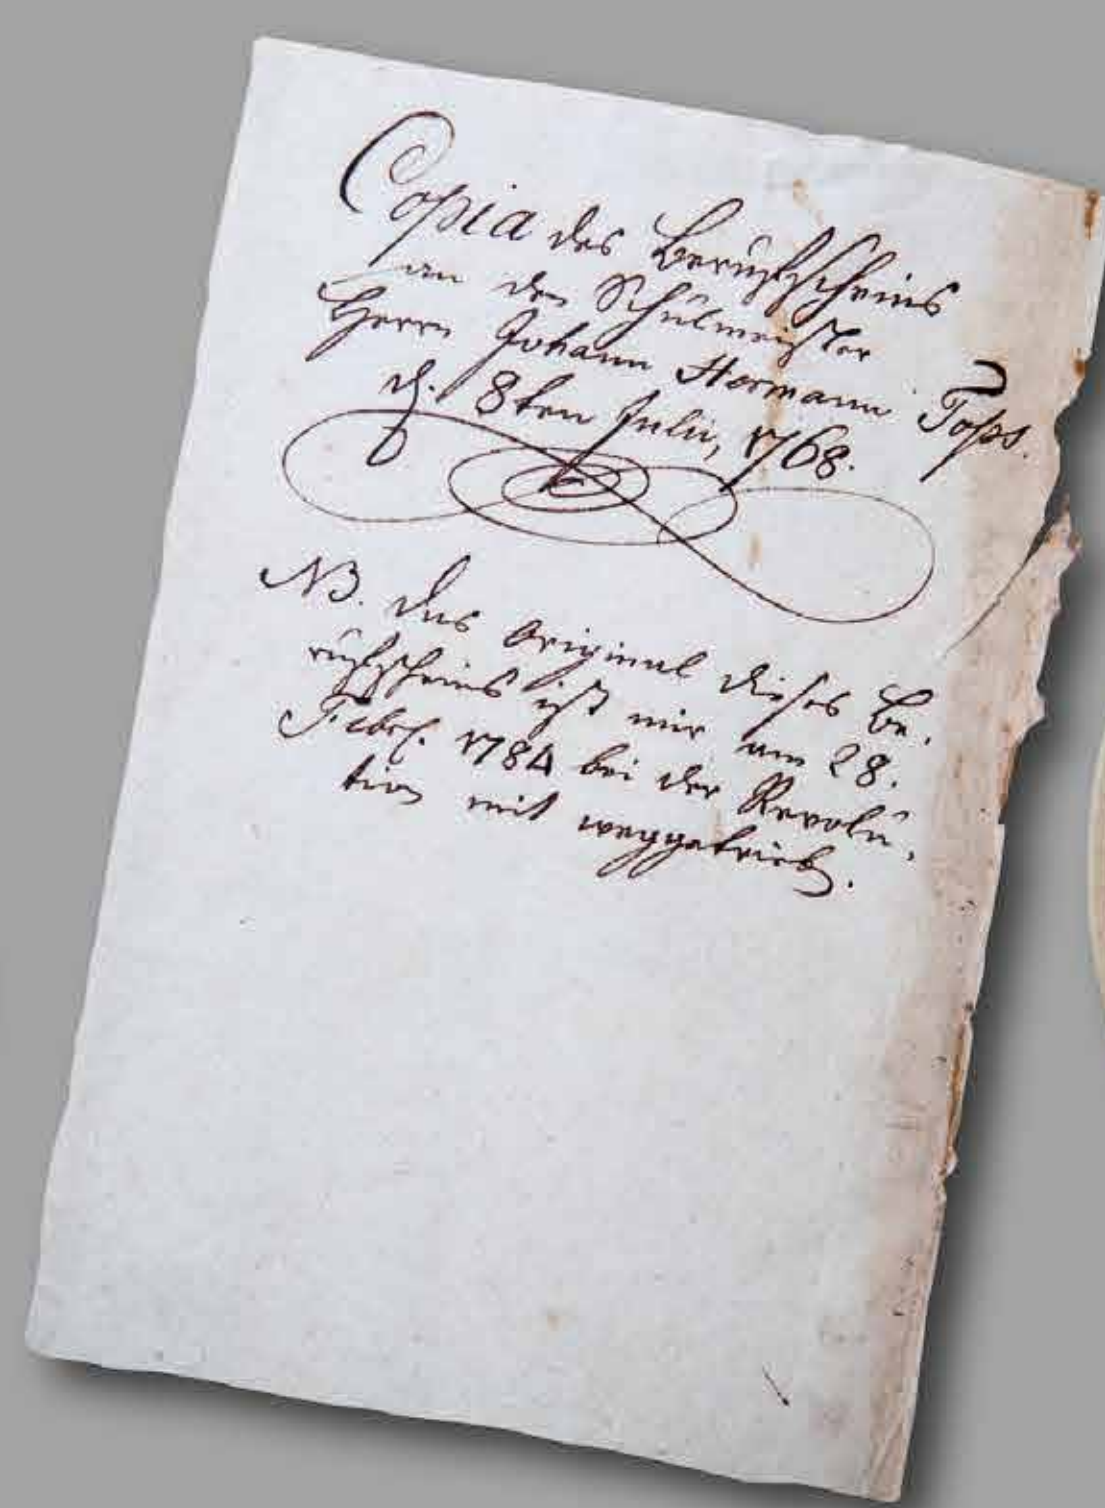 Copia des Berufscheins
an den Schulmeister
Herrn Johann Hermann Tops.
d. 8ten Julii, 1768.
NB. Das Original dieses Be-
rufscheins ist mir am 28.
Febr. 1784 bei der Revolu-
tion mit weggetrieben.